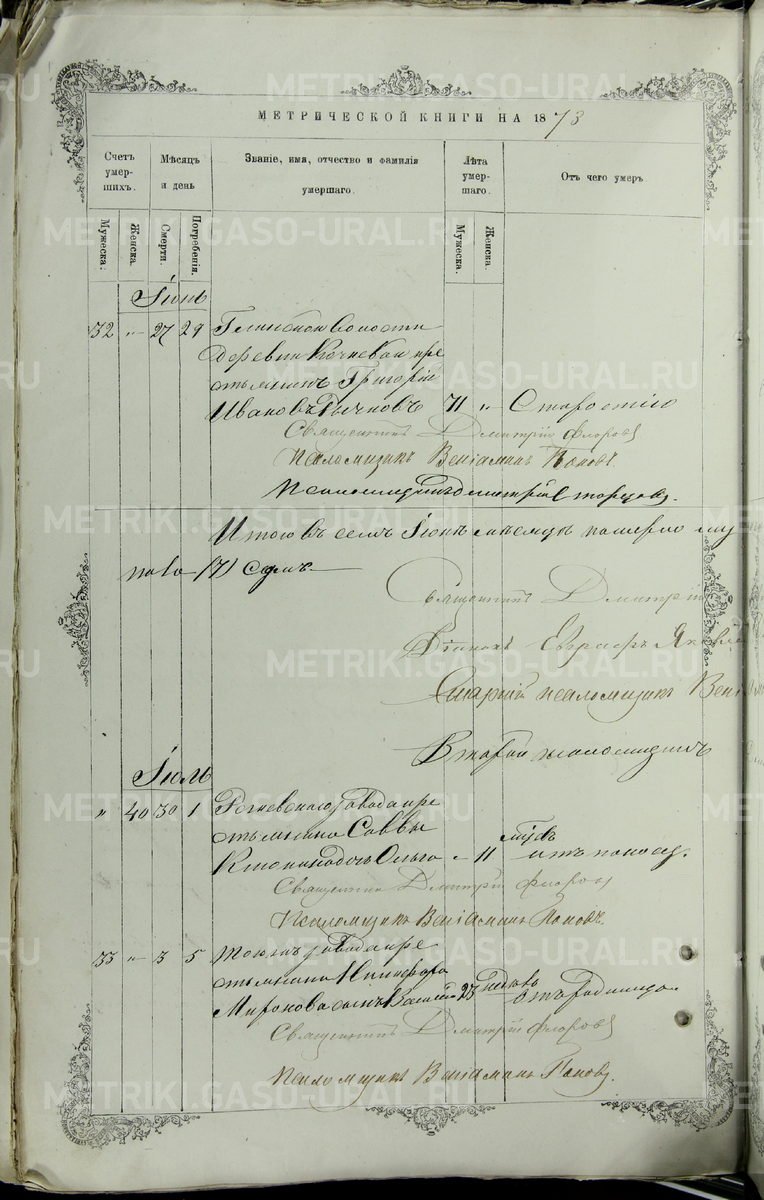 МЕТРИЧЕСКОЙ КНИГИ НА 1873
Счетъ умер- шихъ.
Мѣсяцъ и день
Званіе, имя, отчество и фамилія умершаго.
Лѣта умер- шаго.
Отъ чего умеръ.
Мужеска.
Женска.
Смерти.
Погребенія.
Мужеска.
Женска.
Іюнь
32 „ 27 29
волости
деревни Кочневой кре
стьянинъ Григорій
Ивановъ 71 „ Старостію
Священникъ Дмитрій Флоровъ
Псаломщикъ Веніаминъ Поповъ.
Псаломщикъ Дмитрій
Итого въ семъ Іюнѣ мѣсяцѣ померло му
пола (7) семь
Священникъ Дмитрій
Діаконъ Евграфъ
Старшій псаломщикъ Вен
Вторый псаломщикъ
Іюль
„ 40 30 1 завода кре
стьянина Саввы
дочь Ольга „ 11 отъ поносу.
Священникъ Дмитрій Флоровъ
Псаломщикъ Веніаминъ Поповъ.
33 „ 3 5 завода кре
стьянина Никифора
Миронова сынъ 23 отъ
Священникъ Дмитрій Флоровъ
Псаломщикъ Веніаминъ Поповъ
METRIKI.GASO-URAL.RU